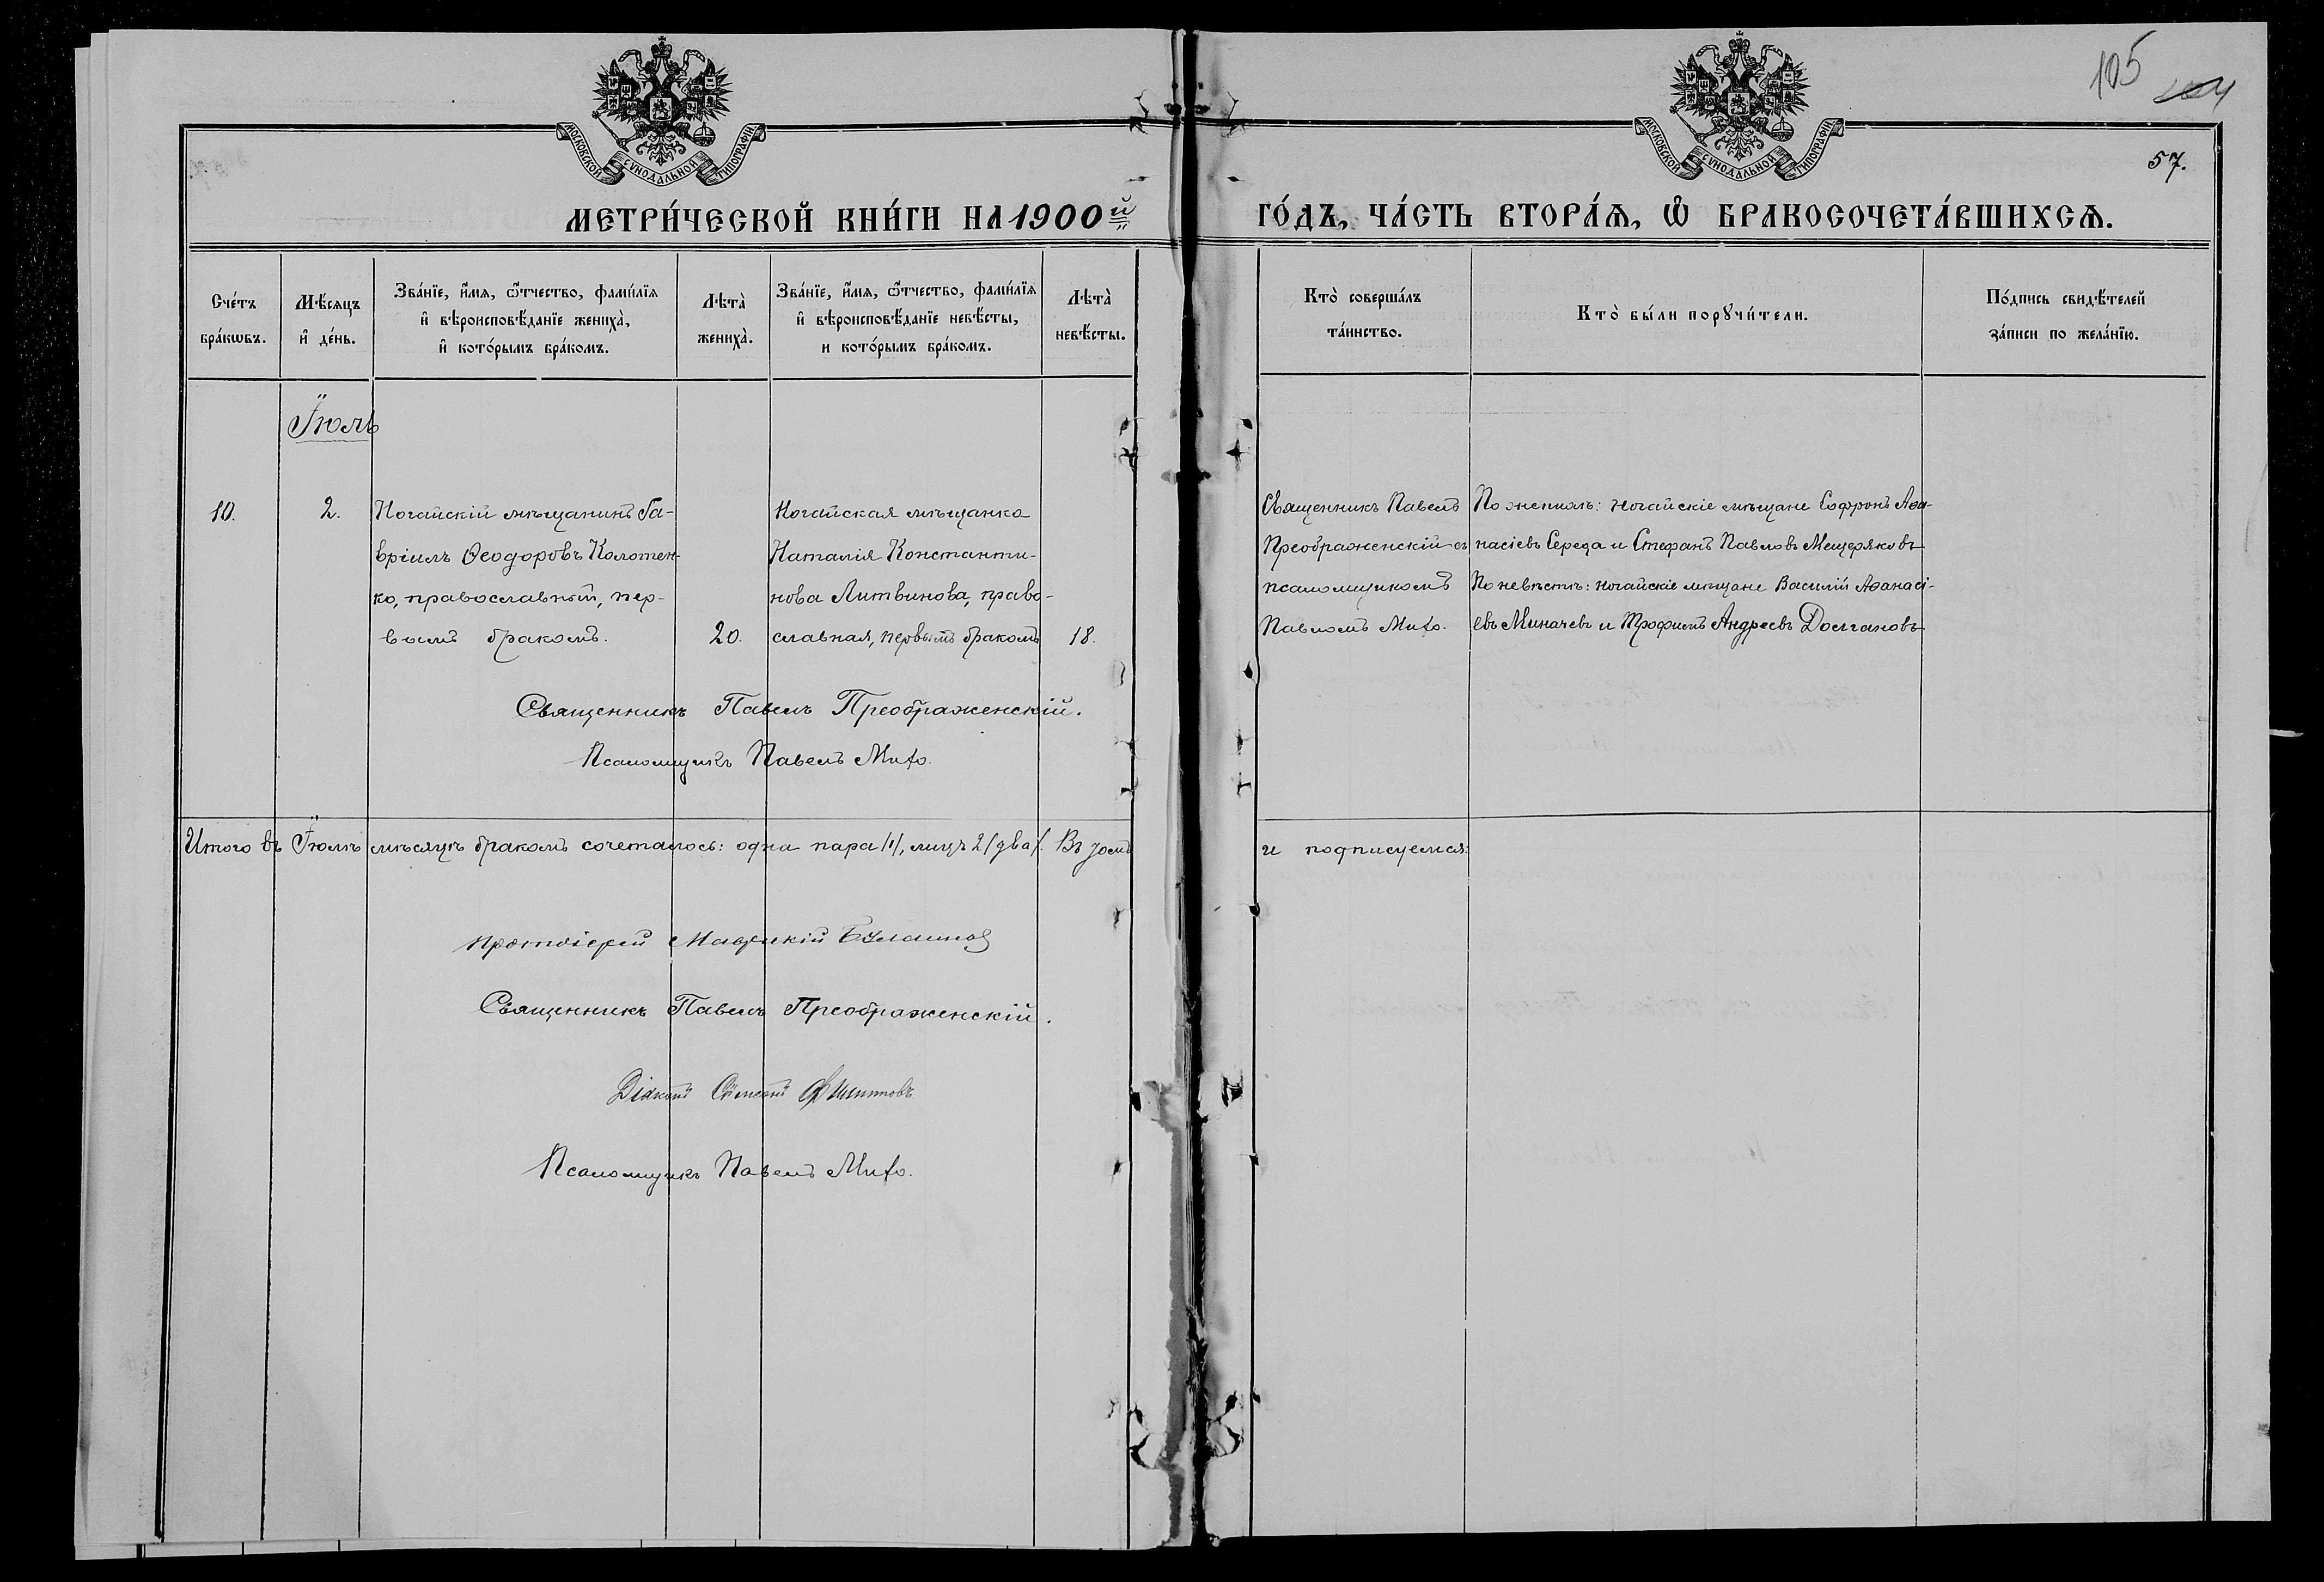 105 104
57.
МОСКОВСКОЙ СУНОДАЛЬНОЙ ТИПОГРАФІИ
МОСКОВСКОЙ СУНОДАЛЬНОЙ ТИПОГРАФІИ
МЕТРИ́ЧЕСКОЙ КНИ́ГИ НА 1900й ГО́ДЪ, ЧА́СТЬ ВТОРА́Ѧ, Ѡ҆ БРАКОСОЧЕТА́ВШИХСѦ.
Сче́тъ бра́кѡвъ.
Мѣ́сѧцъ и҆ де́нь.
Зва́нїе, и҆́мѧ, ѻ҆́тчество, фамѝлїѧ и҆ вѣроисповѣ́данїе жениха̀, и҆ кото́рымъ бра́комъ.
Лѣта̀ жениха̀.
Зва́нїе, и҆́мѧ, ѻ҆́тчество, фамѝлїѧ и҆ вѣроисповѣ́данїе невѣ́сты, и кото́рымъ бра́комъ.
Лѣта̀ невѣ́сты.
Кто̀ соверша́лъ та́инство.
Кто̀ бы́ли порꙋчи́тели.
По́дпись свидѣ́телей за́писи по жела́нїю.
Іюль
10.
2.
Ногайскій мѣщанинъ Га-
вріилъ Ѳеодоровъ Колотен-
ко, православный, пер-
вымъ бракомъ.
20.
Ногайская мѣщанка
Наталія Константи-
нова Литвинова, право-
славная, первымъ бракомъ
18.
Священникъ Павелъ
Преображенскій съ
псаломщикомъ
Павломъ Мито.
По женихѣ: ногайскіе мѣщане Софронъ Аѳа-
насіевъ Середа и Стефанъ Павловъ Мещеряковъ
По невѣстѣ: ногайскіе мѣщане Василій Аѳанасі-
евъ Миначевъ и Трофимъ Андреевъ Долгановъ
Священникъ Павелъ Преображенскій.
Псаломщикъ Павелъ Мито.
Итого въ Іюлѣ мѣсяцѣ бракомъ сочеталось: одна пара /1/, лицъ 2 /два/. Въ томъ и подписуемся:
Протоіерей
Священникъ Павелъ Преображенскій.
Діаконъ Симеонъ Филипповъ
Псаломщикъ Павелъ Мито.